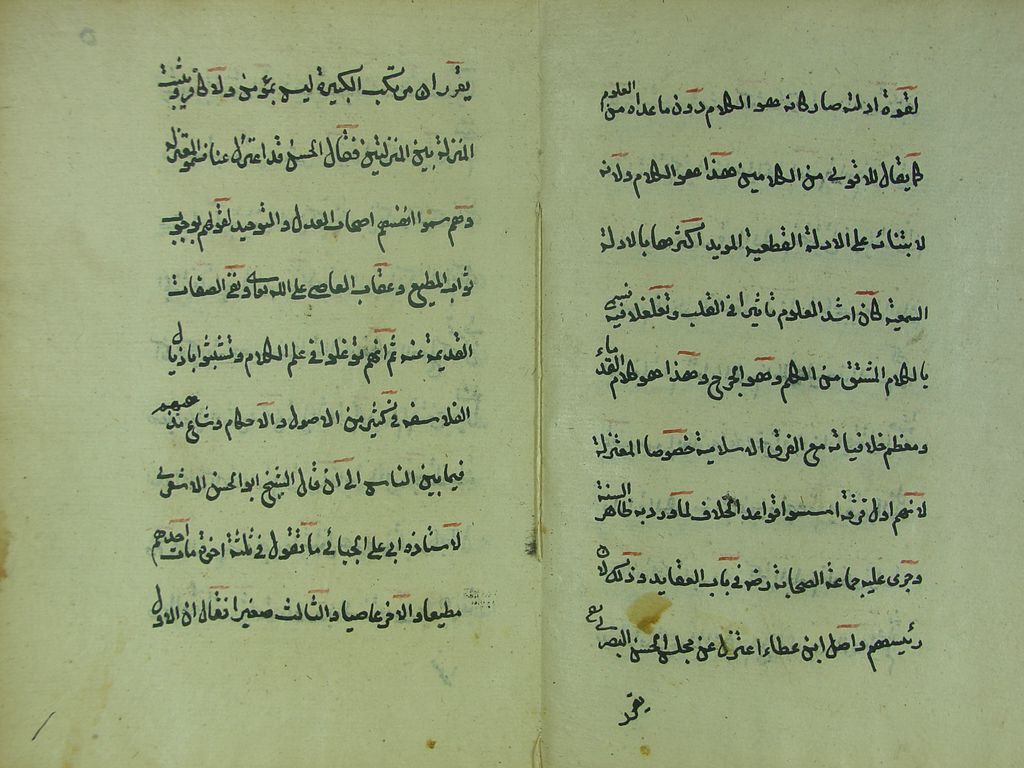 لقوة ادلته صار كانه هو الكلام دون ما عداه من العلوم
كما يقال للاقوى من الكلامين هذا هو الكلام ولانه
لابتنائه على الادلة القطعية المويد اكثرها بالادلة
السمعية كان اشد العلوم تاثيرا في القلب وتغلغلا فيه فسمى
بالكلام المشتق من الكلم وهو الجرح وهذا هو كلام القدماء
ومعظم خلافياته مع الفرق الاسلامية خصوصا المعتزلة
لانهم اول فرقة اسسوا قواعد الخلاف لما ورد به ظاهر السنة
وجرى عليه جماعة الصحابة رضه في باب العقايد وذلك لان
رئيسهم واصل ابن عطاء اعتزل عن مجلس الحسن البصرى
يقرر
يقرر ان مرتكب الكبيرة ليس بمؤمن ولا كافر ويثبت
المنزلة بين المنزلتين فقال الحسن قد اعتزل عنا فسموا المعتزلة
وهم سموا انفسهم اصحاب العدل والتوحيد لقولهم بوجوب
ثواب المطيع وعقاب العاصى على الله تعالى ونفى الصفات
القديمة عنه ثم انهم توغلوا في علم الكلام وتشبثوا باذيال
الفلاسفه في كثير من الاصول والاحكام وشاع مذهبهم
فيما بين الناس الى ان قال الشيخ ابو الحسن الاشعرى
لاستاذه ابي على الجبائى ما تقول في ثلثة اخوة مات احدهم
مطيعا والاخر عاصيا والثالث صغيرا فقال ان الاول